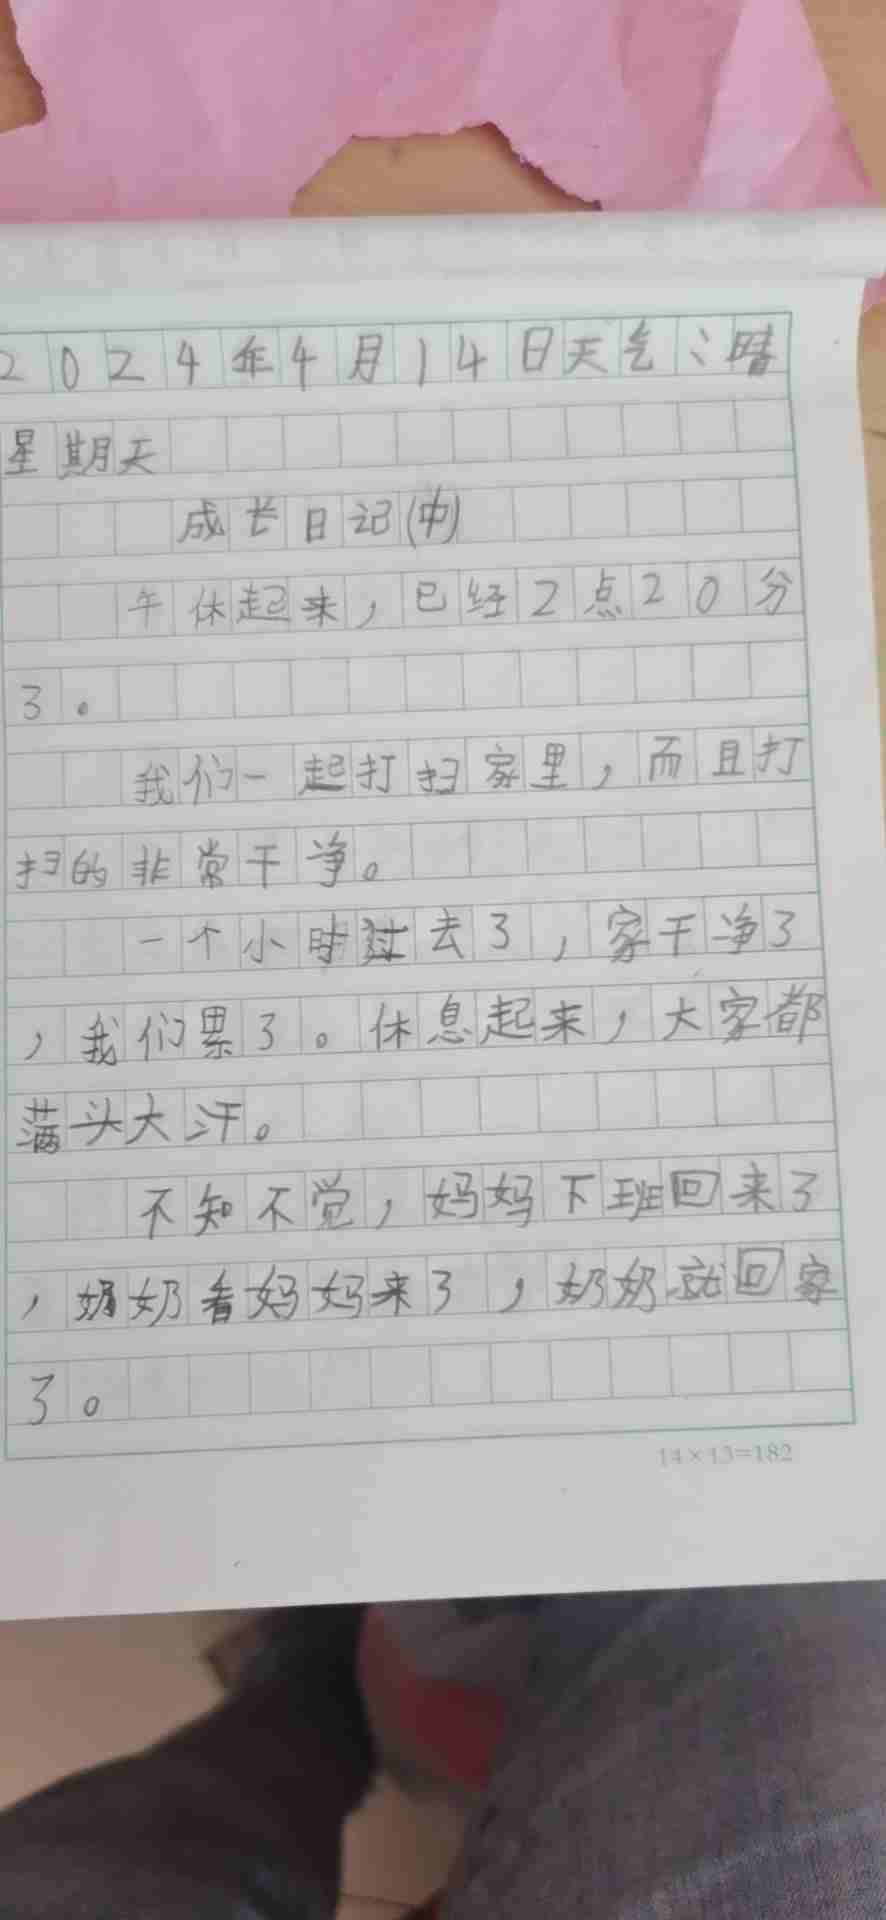 2024年4月14日天气:晴
星期天
成长日记(中)
午休起来,已经2点20分
了。
我们一起打扫家里,而且打
扫的非常干净。
一个小时过去了,家干净了
,我们累了。休息起来,大家都
满头大汗。
不知不觉,妈妈下班回来了
,奶奶看妈妈来了,奶奶就回家
了。
14×13=182